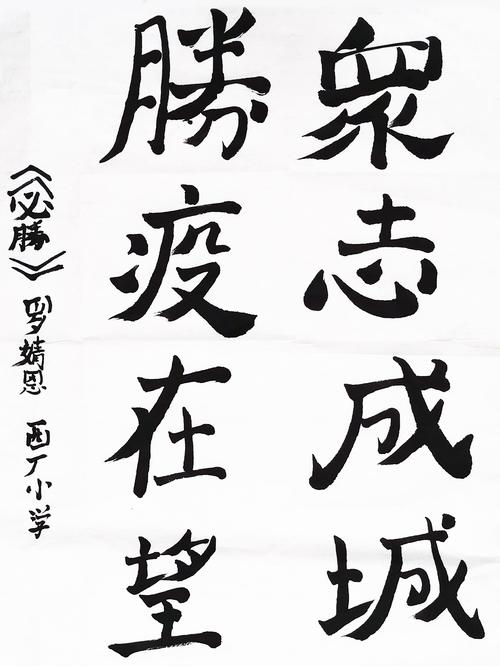 衆志成城
勝疫在望
《必勝》 罗婧恩 西丁小学